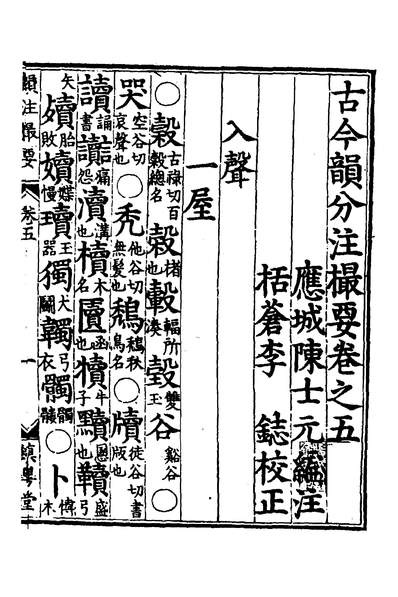 古今韻分注撮要卷之五
應城陳士元編注
栝蒼李 鋕校正
入聲
一屋
○穀古祿切百穀總名榖楮也轂輻所湊瑴雙玉谷谿谷○
哭空谷切哀聲也○秃他谷切無髮也鵚鵚秋鳥名○牘徒谷切書版也
讀誦書讟痛怨瀆溝也櫝木名匵函也犢牛子黷也韇盛弓
矢殰胎敗嬻媟慢瓄玉器獨犬鬬韣弓衣髑髑髏○卜
韻注撮要 卷五 一 鎮粵堂